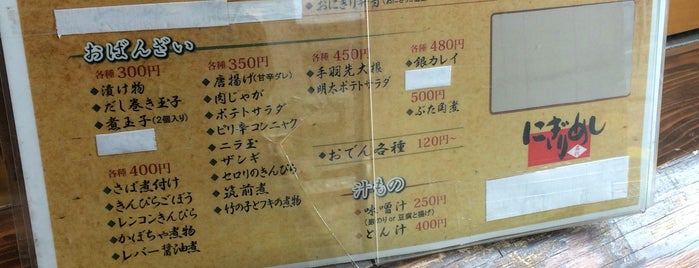 おにぎり弁当
おばんざい
各種 300円
◆漬け物
◆だし巻き玉子
◆煮玉子(2個入り)
各種 400円
◆さば煮付け
◆きんぴらごぼう
◆レンコンきんぴら
◆かぼちゃ煮物
◆レバー醤油煮
各種 350円
◆唐揚げ(甘辛ダレ)
◆肉じゃが
◆ポテトサラダ
◆ピリ辛コンニャク
◆ニラ玉
◆ザンギ
◆セロリのきんぴら
◆筑前煮
◆竹の子とフキの煮物
各種 450円
◆手羽先大根
◆明太ポテトサラダ
各種 480円
◆銀カレイ
500円
◆ぶた角煮
◆おでん各種 120円~
汁もの
◆味噌汁 250円
(銀のり or 豆腐と揚げ)
◆とん汁 400円
にぎりめし